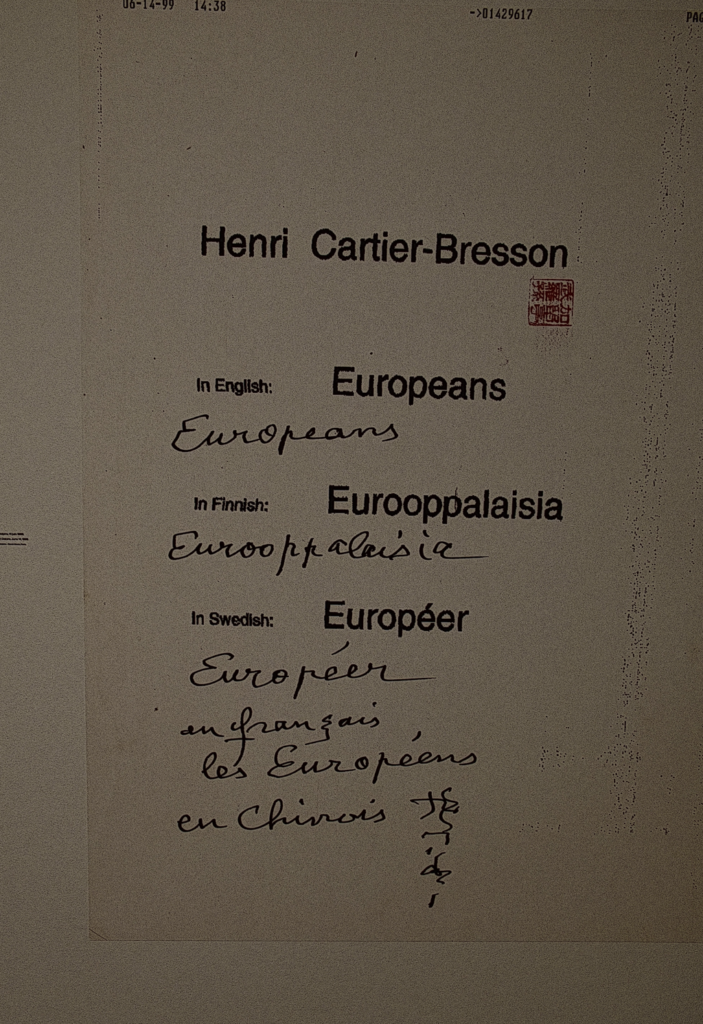 06-14-99 14:38 ->01429617
Henri Cartier-Bresson
In English: Europeans
Europeans
In Finnish: Eurooppalaisia
Eurooppalaisia
In Swedish: Européer
Européer
en français
les Européens
en Chinois